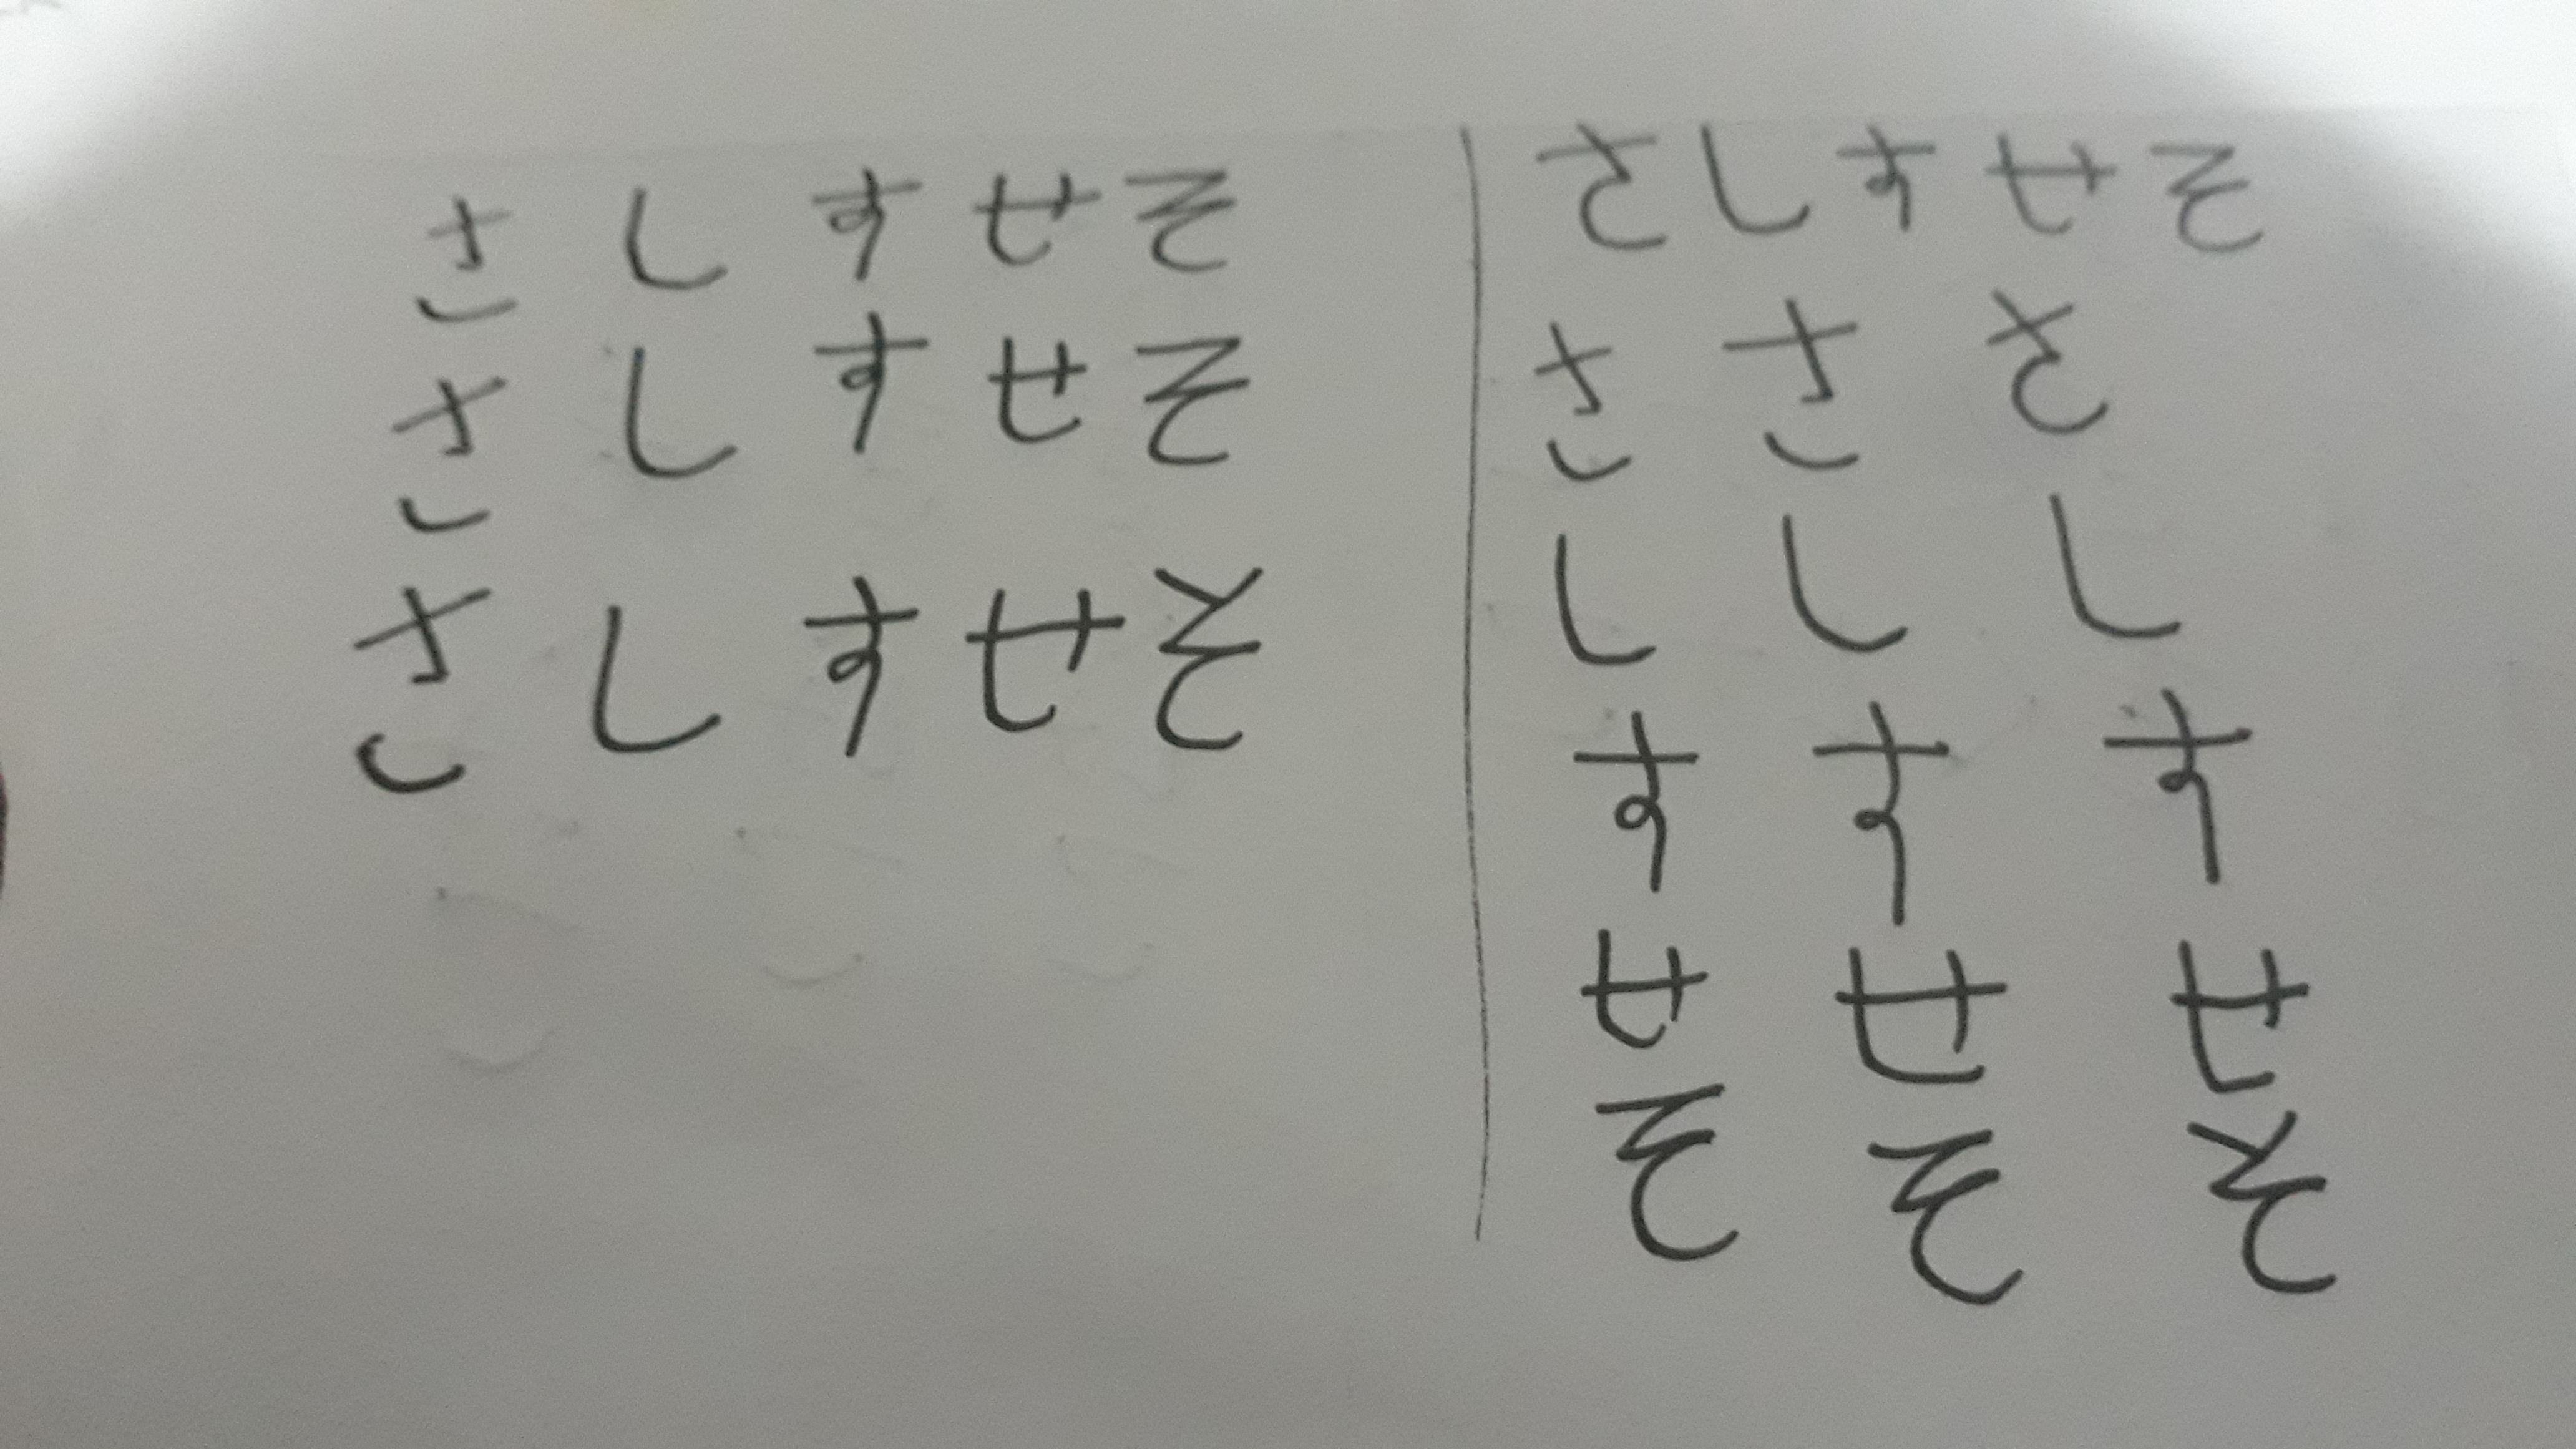 さしすせそ
さしすせそ
さしすせそ
さしすせそ
さささ
ししし
すすす
せせせ
そそそ